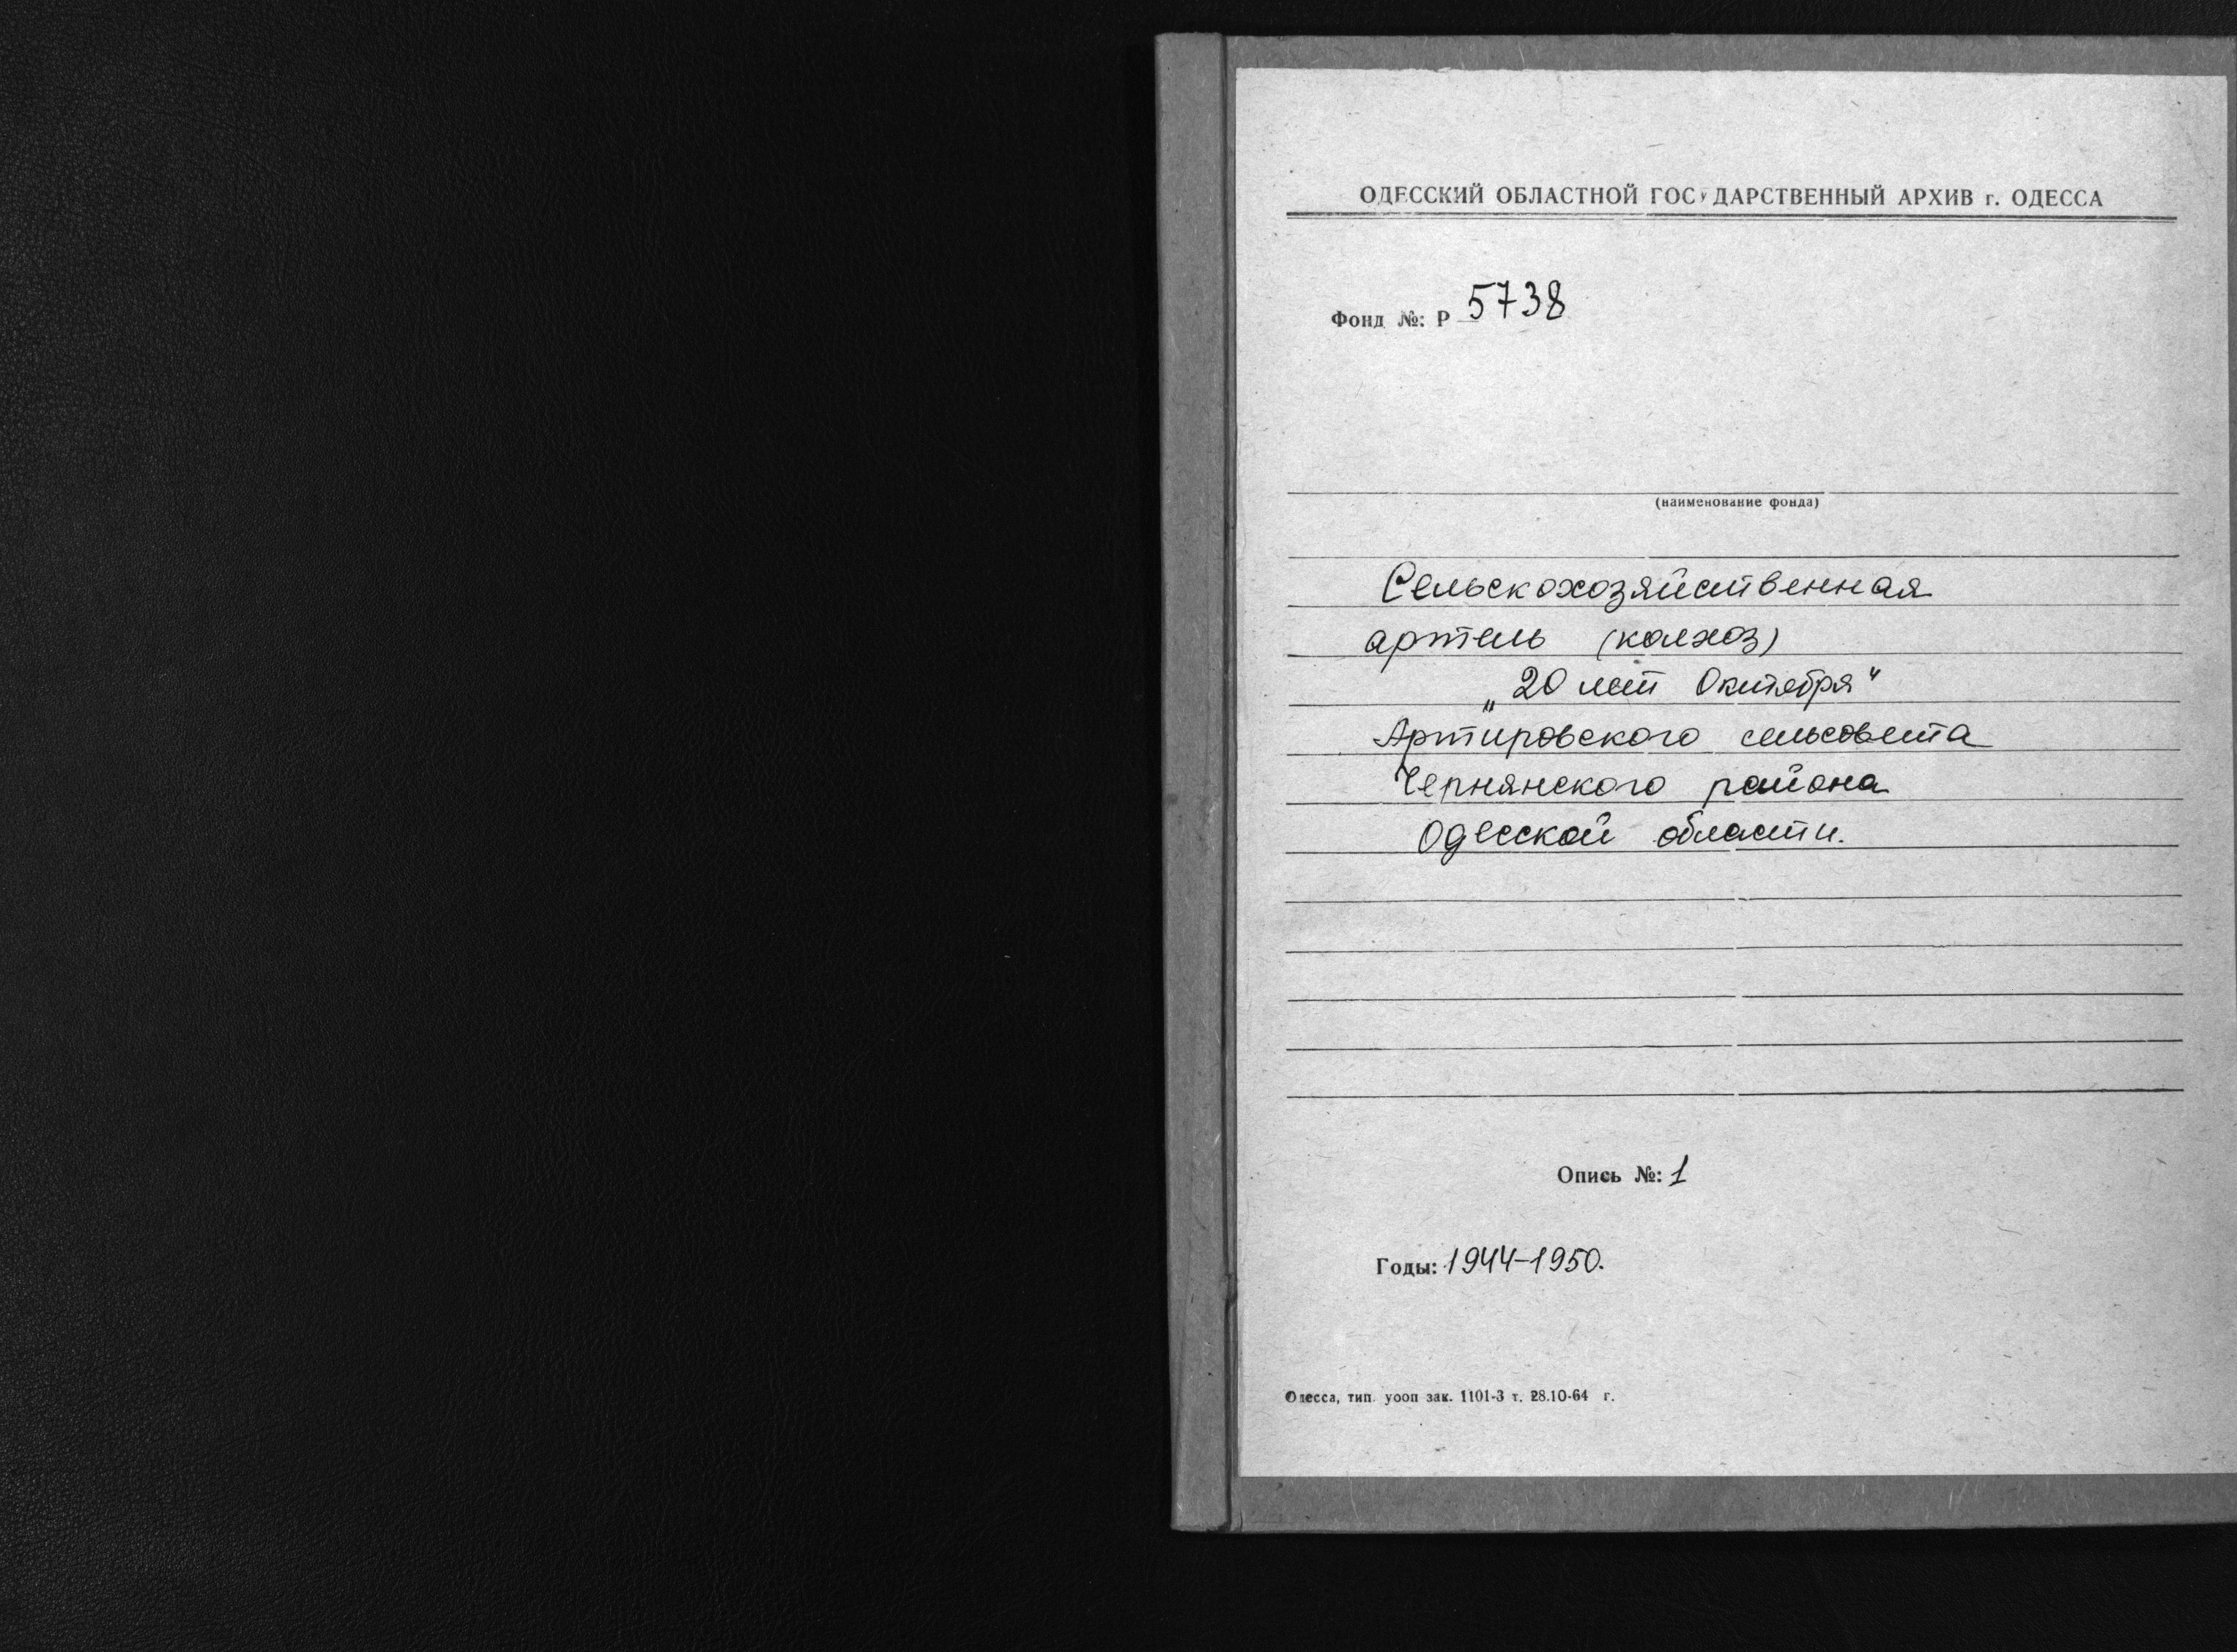 ОДЕССКИЙ ОБЛАСТНОЙ ГОСУДАРСТВЕННЫЙ АРХИВ г. ОДЕССА
Фонд №: Р 5738
(наименование фонда)
Сельскохозяйственная
артель (колхоз)
„20 лет Октября"
Артировского сельсовета
Чернянского района
Одесской области.
Опись №: 1
Годы: 1944-1950.
Одесса, тип. уооп зак. 1101-3 т. 28.10-64 г.